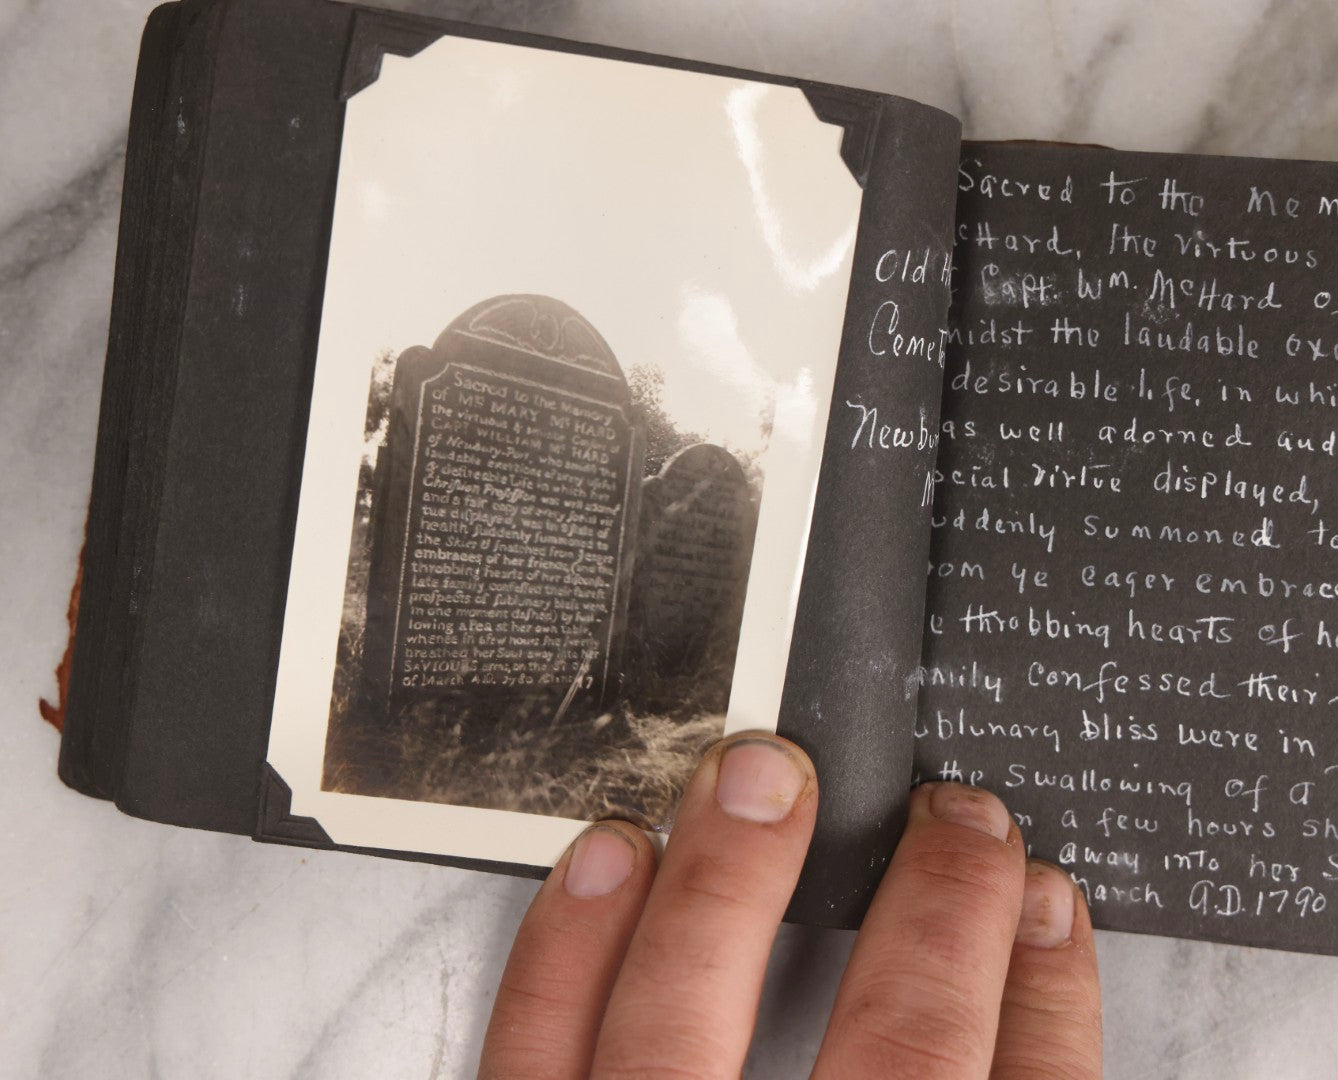 Sacred to the Memory
of Mrs MARY McHARD
the virtuous & Consort of
CAPT WILLIAM McHARD
of Newbury-Port, who amidst the
laudable exertions of a very useful
& desireable Life in which her
Christian Profession was well adorned
and a fair copy of every social vir
tue displayed, was in a state of
health suddenly summoned to
the Skies & snatched from ye eager
embraces of her friends, and the
throbbing hearts of her disconso-
late family confessed their fairest
prospects of sublunary bliss were
in one moment dashed by swal-
lowing a Pea at her own table,
whence in a few hours she sweetly
breathed her Soul away into her
SAVIOUR'S arms, on the day
of March A.D. 1780
Old
Newbur
Sacred to the Mem
cHard, the virtuous
Capt. Wm. McHard of
midst the laudable exe
desirable life, in whi
as well adorned and
ocial virtue displayed,
uddenly summoned to
rom ye eager embrace
e throbbing hearts of h
amily confessed their
ublunary bliss were in
the swallowing of a
n a few hours sh
away into her S
March A.D. 1790